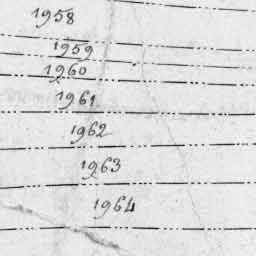 1958
1959
1960
1961
1962
1963
1964